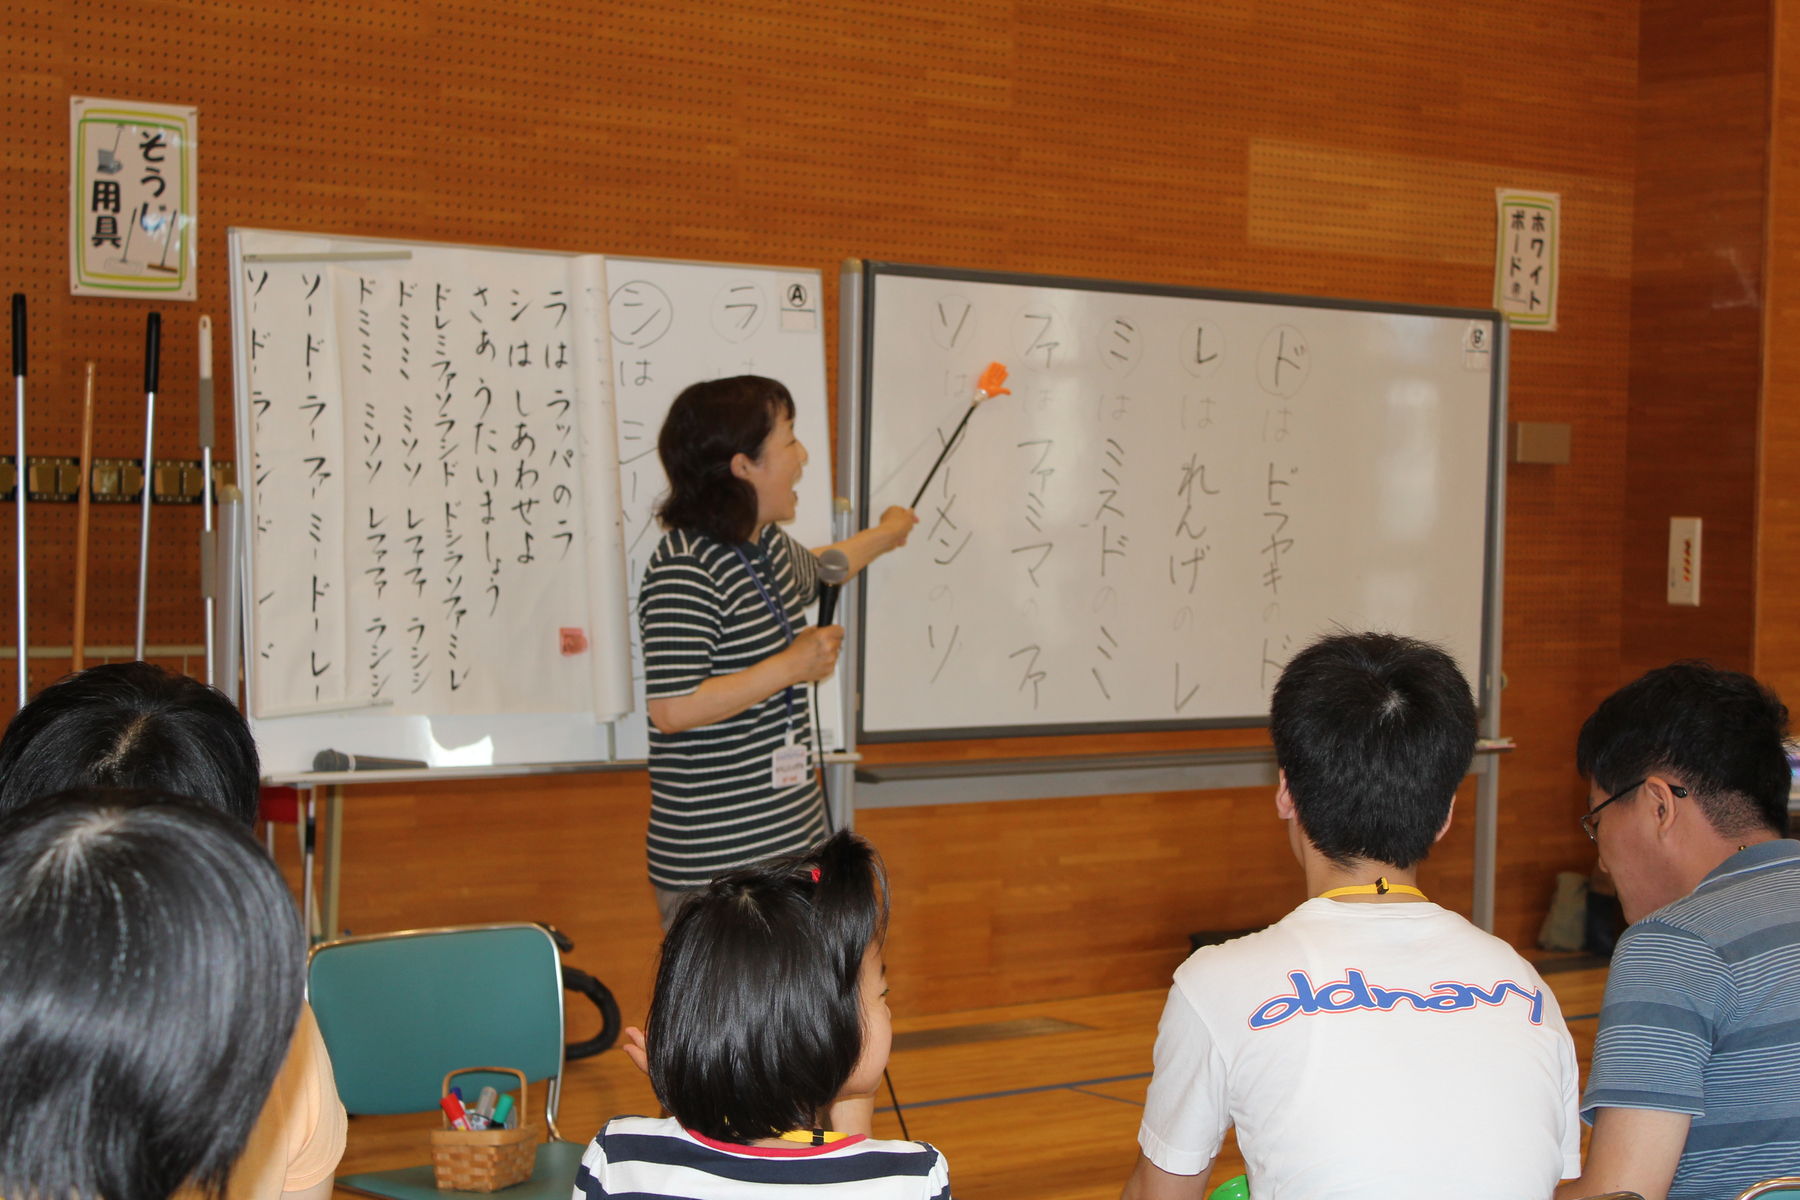 そうじ
用具
ホワイト
ボード
Ⓑ
ドは ドラヤキのド
レは れんげの レ
ミは ミスドのミ
ファは ファミマのファ
ソは ソーメンのソ
Ⓐ
ラは
シは シーソ
ラは ラッパのラ
シは しあわせよ
さあ うたいましょう
ドレミファソラシド ドシラソファミレ
ドミミ ミソソ レファファ ラシシ
ドミミ ミソソ レファファ ラシシ
ソードーラーファーミードーレー
ソードーラーシード
oldnavy